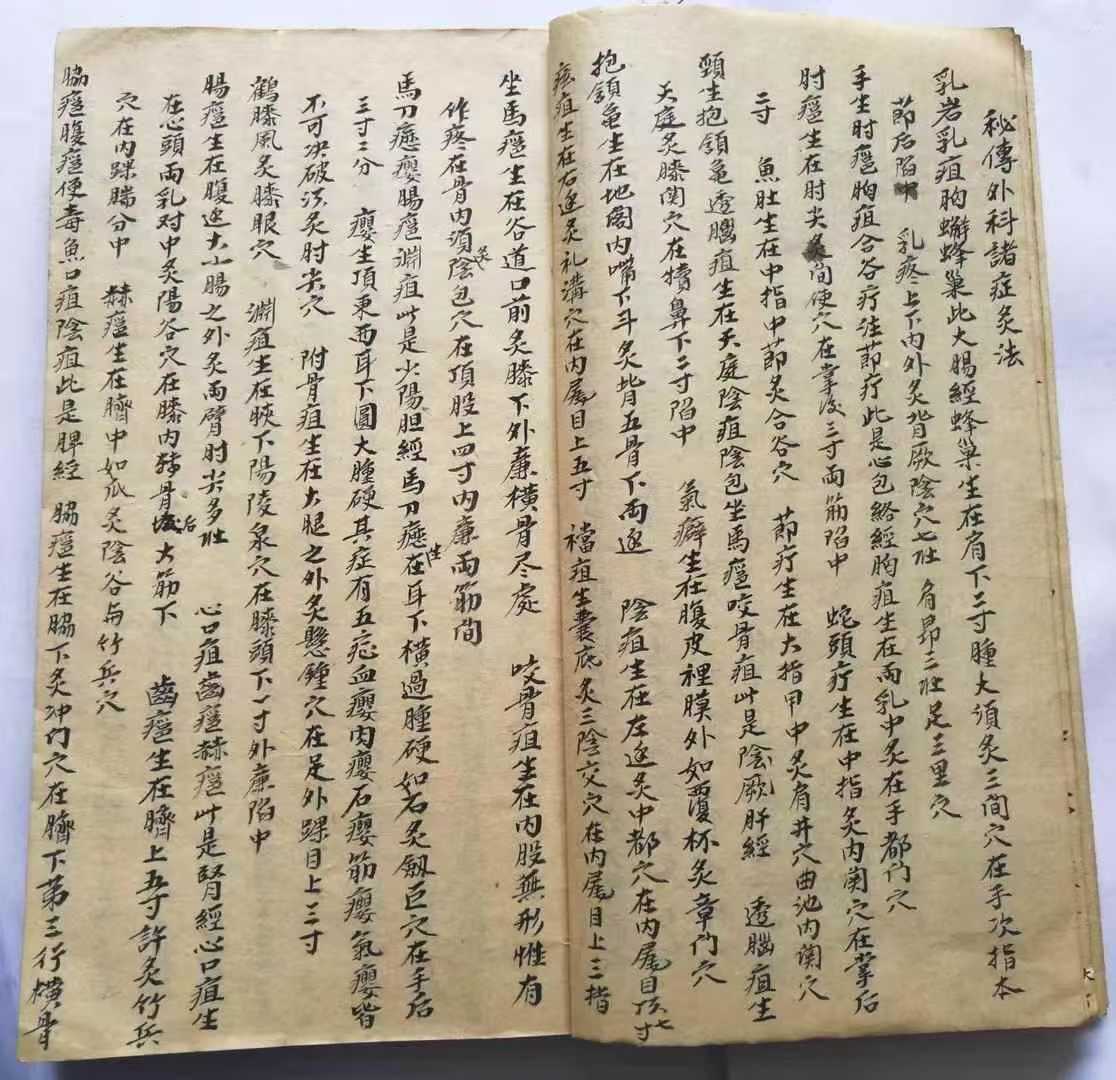 秘傳外科諸症灸法
乳岩乳疽胸蠏蜂巢此大腸經蜂巢生在肩下二寸腫大須灸三間穴在手次指本
節后陷中 乳疼上下内外灸背厥陰穴七壯 肩昂二壯足三里穴
手生肘癰胸疽合谷疔注節疔此是心包絡經胸疽生在兩乳中灸在手都门穴
肘癰生在肘尖灸间使穴在掌後三寸兩筋陷中 蛇頭疔生在中指灸内関穴在掌后
二寸 魚肚生在中指中節灸合谷穴 節疔生在大指甲中灸肩井穴曲池内関穴
頸生抱頷龜透腦疽生在天庭陰疽陰包坐馬癰咬骨疽此是陰厥肝經 透腦疽生
天庭灸膝関穴在犢鼻下二寸陷中 氣癖生在腹皮裡膜外如覆杯灸章门穴
抱頷龜生在地閣内嘴下斗灸背五骨下兩逐 陰疽生在左逐灸中都穴在内尾目頂七寸
疽生在右逐灸礼溝穴在内尾目上五寸 襠疽生囊底灸三陰交穴在内尾目上三指
坐馬癰生在谷道口前灸膝下外廉橫骨尽處 咬骨疽生在内股無形惟有
作疼在骨内須灸陰包穴在頂股上四寸内廉兩筋间
馬刀癧瘿腸癰渊疽此是少陽胆經馬刀癧生在耳下橫過腫硬如石灸劔巨穴在手后
三寸二分 瘿生頂東西耳下圓大腫硬其症有五忌血瘿肉瘿石瘿筋瘿氣瘿皆
不可决破須灸肘尖穴 附骨疽生在大腿之外灸懸鍾穴在足外踝目上三寸
鶴膝風灸膝眼穴 渊疽生在脥下陽陵泉穴在膝頭下一寸外廉陷中
腸癰生在腹逐大小腸之外灸兩臂肘尖多壯 心口疽齒癰赫癰此是腎經心口疽生
在心頭兩乳对中灸陽谷穴在膝内輔骨后大筋下 齒癰生在臍上五寸許灸竹兵
穴在内踝腨分中 赫癰生在臍中如瓜灸陰谷与竹兵穴
脇癰腹癰便毒魚口疽陰疽此是脾經 脇癰生在脇下灸冲门穴在臍下第三行橫骨